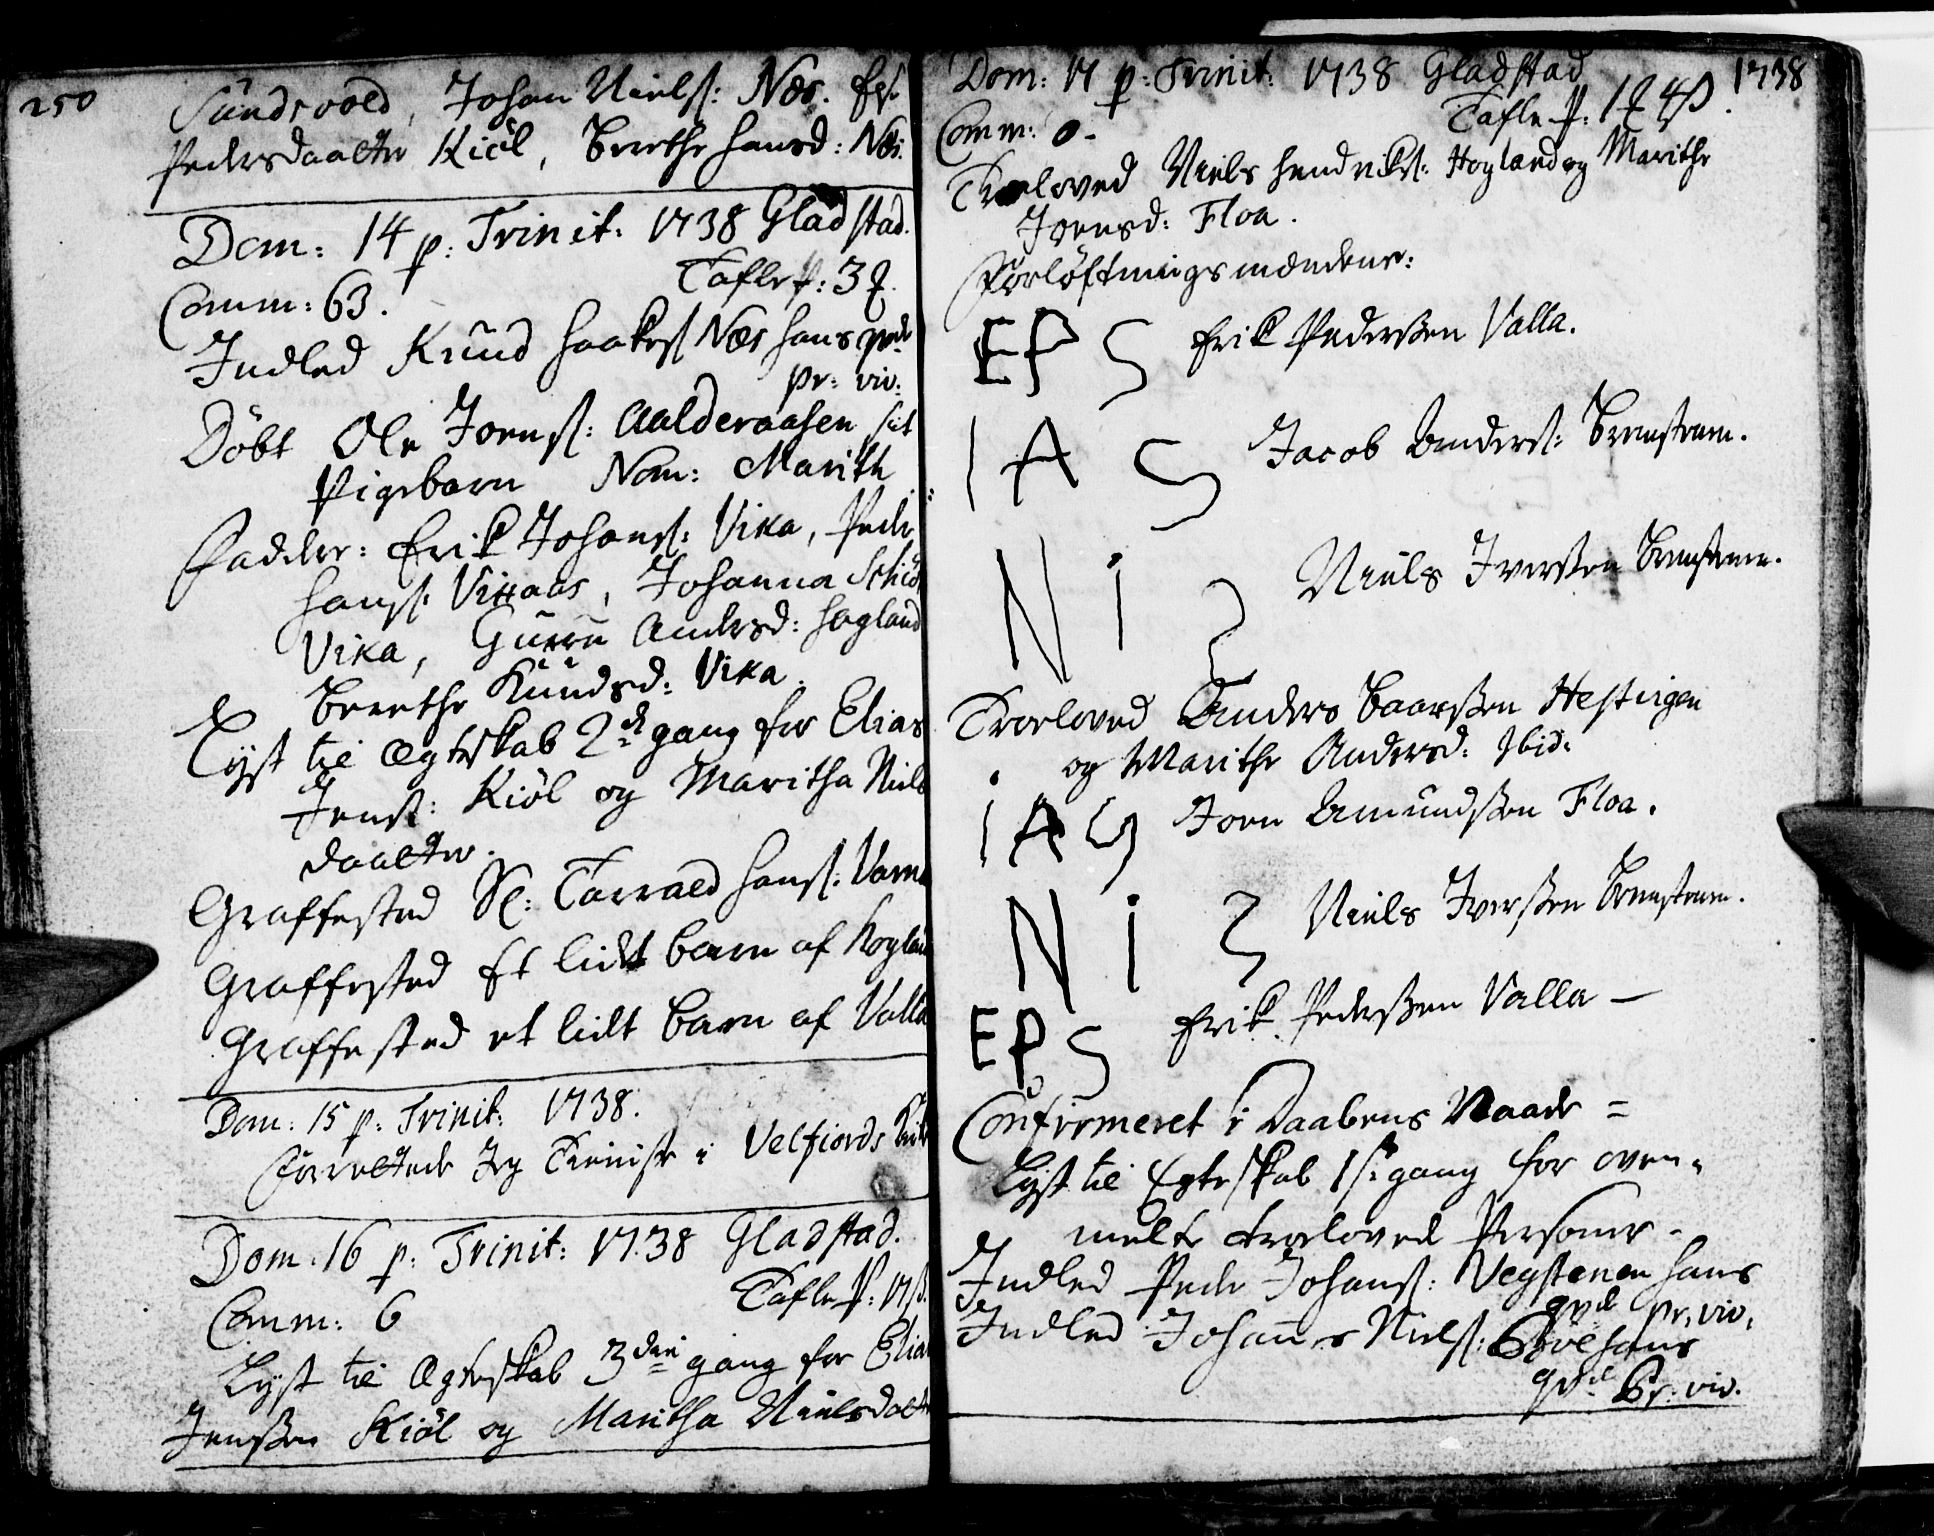 250
Sundsvold, Johan Niels: Næs.
Pedersdaatter Kiöl, Berethe Hansd: Næs.
Dom: 14 p: Trinit: 1738 Gladstad.
Tafle P: 3
Comm: 63.
Indled Knud Haakes Næs hans qvd
pr: viv:
Döbt Ole Joens: Aalderaasen sit
Pigebarn Nom: Marith
Fadder: Erik Johans: Vika, Peder
Hans: Vikaas, Johanna
Vika, Guru Andersd: Hogland
Berethe Knudsd: Vika.
Lyst til Ægteskab 2de gang for Elias
Jens: Kiöl og Maritha Niels
daatter.
Graffested Sl: Tarrald Hans:
Graffested Et lidt barn af Hogland
Graffested et lidt barn af Valla
Dom: 15 p: Trinit: 1738.
Forrettede Jeg Tieniste i Velfiords
Dom: 16 p: Trinit: 1738 Gladstad.
Tafle P: 17
Comm: 6
Lyst til Ægteskab 3die gang for Elias
Jenssen Kiöl og Maritha Nielsdaatter
Dom: 17 p: Trinit: 1738 Gladstad 1738
Tafle P: 1 4
Comm: 0.
Troloved Niels Hendriks: Hogland og Marithe
Joensd: Floa.
Forlöftningsmændene:
EPS Erik Pederssen Valla.
IAS Jacob Anders: Bremsteen.
NIS Niels Iverssen Bremsteen.
Troeloved Anders Baarssen Hestvigen
og Marithe Andersd: Ibid:
IAS Joen Amundssen Floa.
NIS Niels Iverssen Bremsteen.
EPS Erik Pederssen Valla —
Confirmeret i Daabens Naade =
Lyst til Egteskab 1ste gang for oven-
melte troeloved Personer.
Indled Peder Johans: Vegstenen hans
qvd pr: viv.
Indled Johannes Niels: hans
qvd pr: viv.